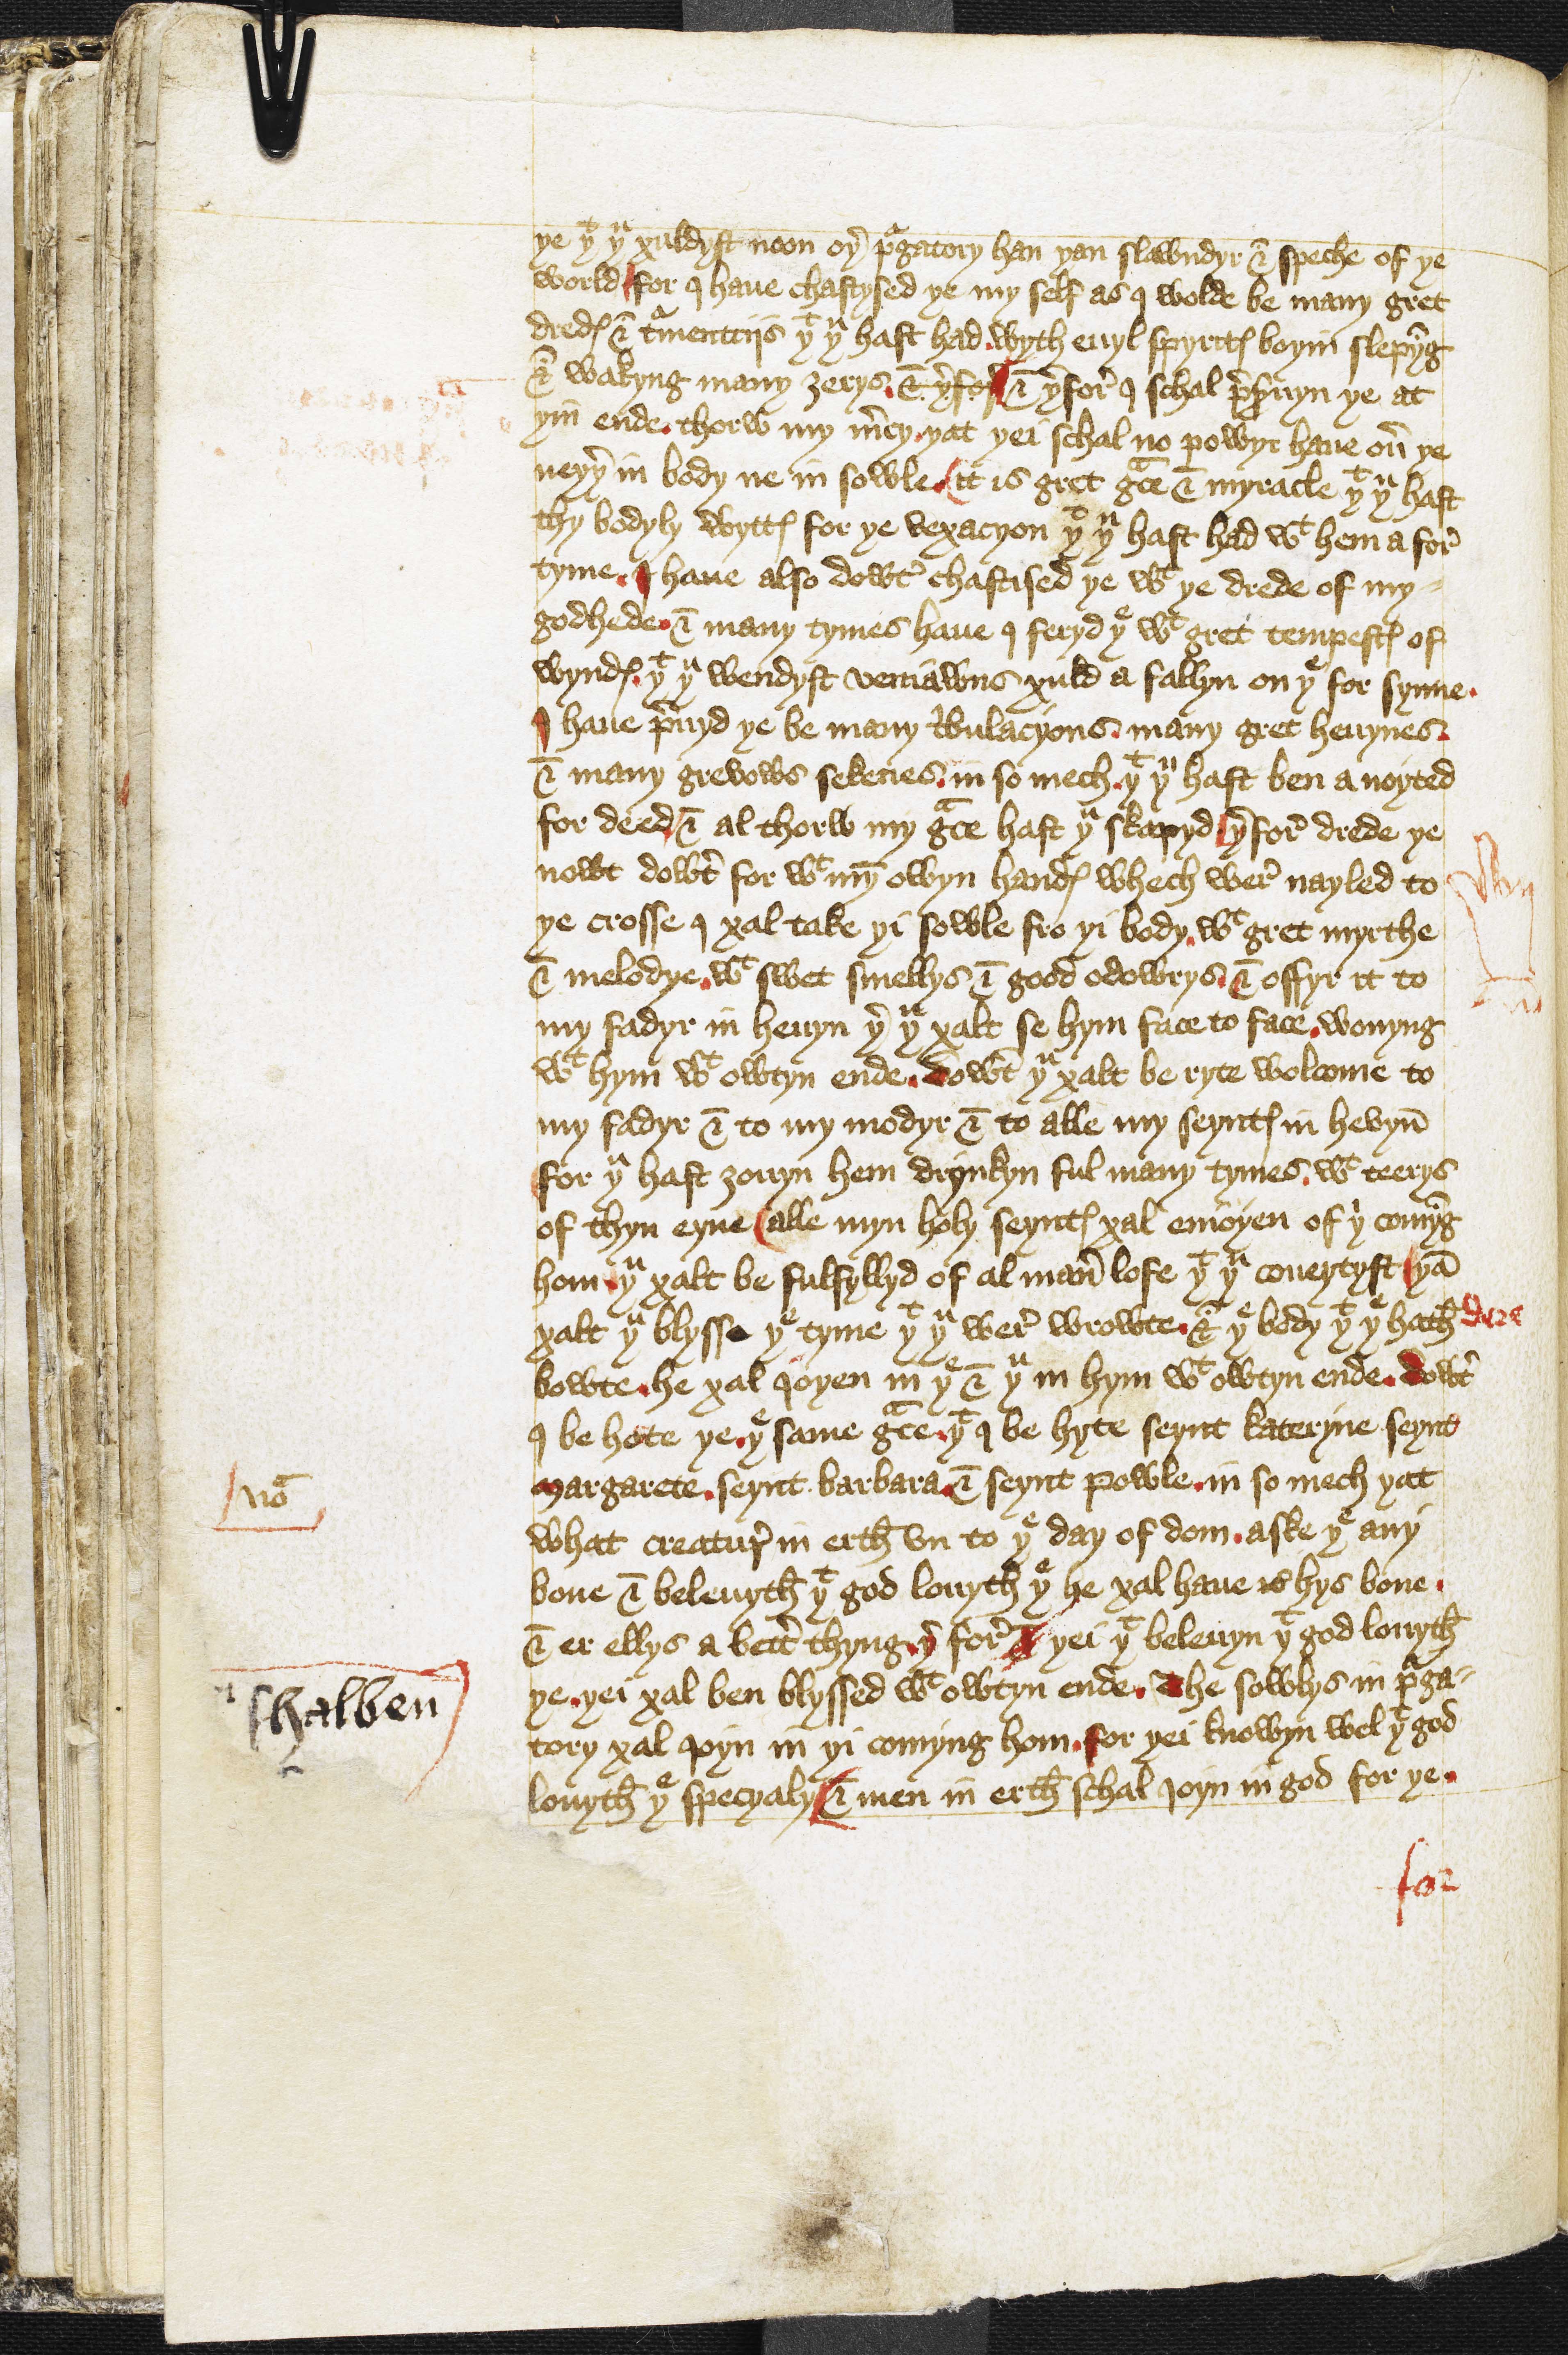 ye yͭ yᵘ xuldyst noon oy̓ pᵃgatory han yan slawndyr & speche of ye
world for I haue chastysed ye my self as I wolde be many gret
dredꝭ & tᵘmentrijs yͭ yᵘ hast had. wyth euyl spyritꝭ boyin slepyn̄g
& wakyng many ȝerys. & y̓for̓ & y̓for̓ I schal p̓seruyn ye at
yin ende. thorw my m̓cy. yat yei schal no powyr haue ou̓ ye
neyy̓ in body ne in sowle. it is gret gᵃce & myracle yͭ yᵘ hast
thy bodyly wyttꝭ for ye vexacyon yͭ yᵘ hast had wͭ hem a for̓
tyme. I haue also dowt̓ chastised ye wͭ ye drede of my-
godhede. & many tymes haue I feryd yᵉ wͭ gret tempestꝭ of
wyndꝭ. yͭ yᵘ wendyst veniawns xuld a fallyn on yᵉ for synne.
I haue p̓uyd ye be many t̓bulacyons. many gret heuynes.
& many grevows sekenes. in so mech. yͭ yᵘ hast ben a noyted
for deed & al thorw my gᵃce hast yᵘ skapyd y̓for̓ drede ye
nowt dowt̓ for wͭ myn̄ owyn handꝭ whech wer̓ nayled to
ye crosse I xal take yi sowle fro yi body. wͭ gret myrthe
& melodye. wͭ swet smellys & good odowrys. & offyr it to
my fadyr in heuyn y̓ yᵘ xalt se hym face to face. wonyng
wͭ hym wͭ owtyn ende. Dowt̓ yᵘ xalt be ryte wolcome to
my fadyr & to my modyr & to alle my seyntꝭ in hevyn̄
for yᵘ hast ȝouyn hem drynkyn ful many tymes. wͭ teerys
of thyn eyne alle myn holy seyntꝭ xal enioyen of yⁱ comyn̄g
hom. yᵘ xalt be fulfyllyd of al man̓ lofe yͭ yᵘ coueytyst yā
xalt yᵘ blysse yᵉ tyme yͭ yᵘ wer̓ wrowte. & yᵉ body yͭ yᵉ hath dere
bowte. he xal Ioyen in yᵉ & yᵘ in hym wͭ owtyn ende. dowt̓
I be hote ye. yᵉ same gᵃce. yͭ I be hyte seynt kateryne seynt
Margarete. seynt barbara. & seynt powle. in so mech yat
what creatur̓ in erth vn to yᵉ day of dom. aske yᵉ any
bone & beleuyth yͭ god louyth yᵉ he xal haue is hys bone.
& er ellys a bett̓ thyng. y̓ for̓ yei yͭ beleuyn yͭ god louyth
ye. yei xal ben blyssed wͭ owtyn ende. The sowlys in pᵃga-
tory xal Ioyn in yi comyng hom. for yei knowyn wel yͭ god
louyth yᵉ specyaly & men in erth schal Ioyn in god for ye.
nō
shalben
for